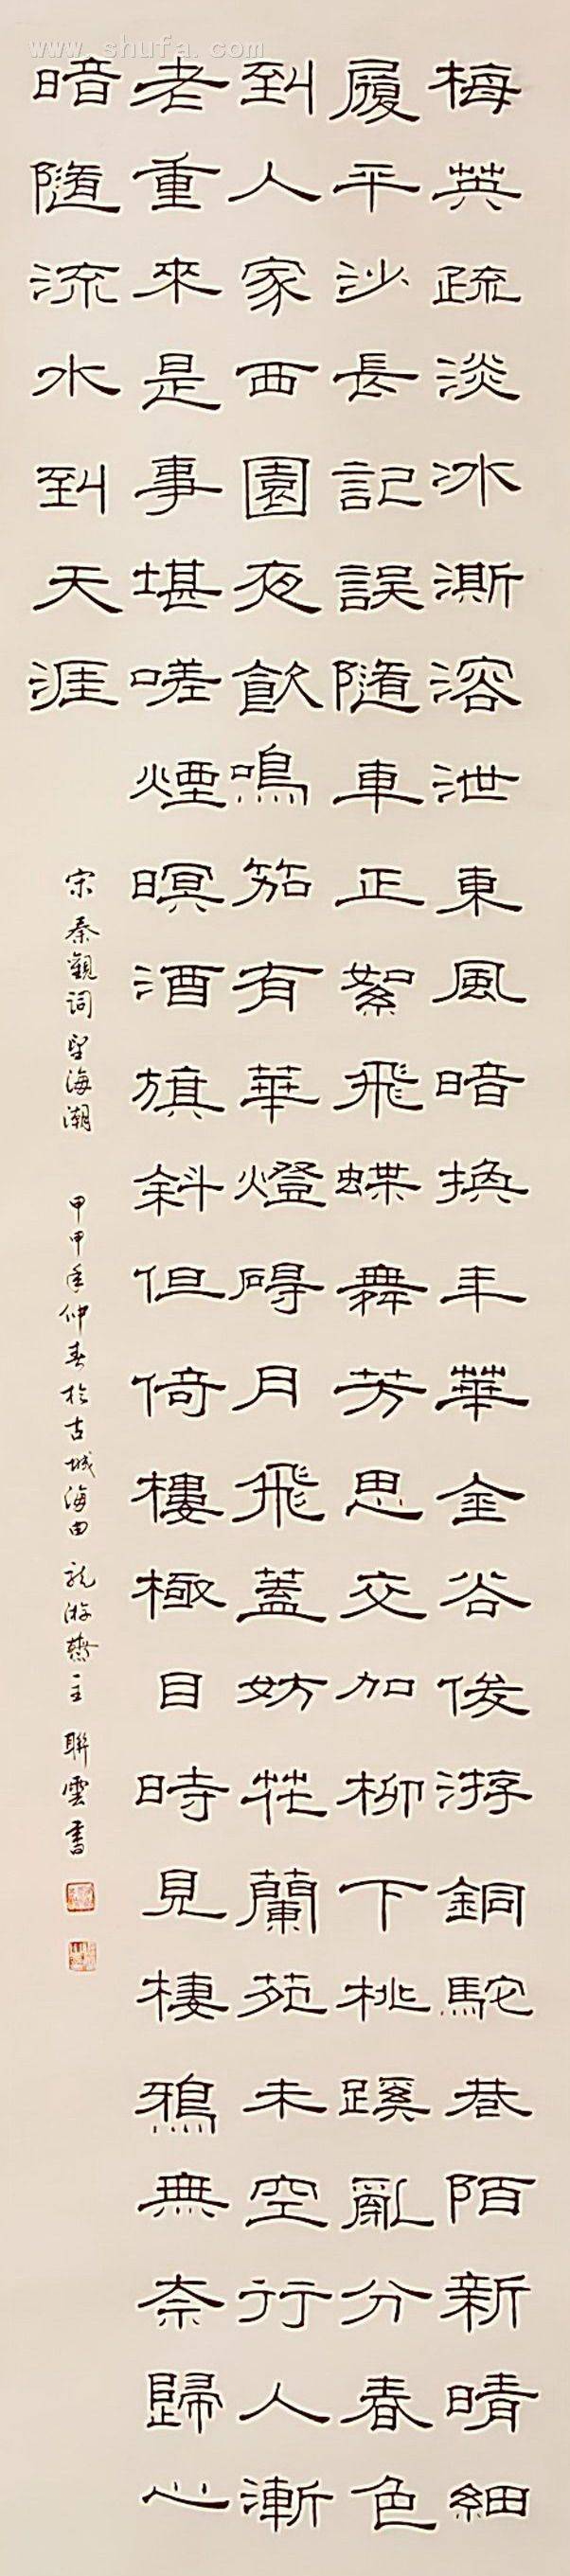 www.shufa.com
梅英疏淡冰澌溶泄東風暗換年華金谷俊游銅駝巷陌新晴細
履平沙長記誤隨車正絮飛蝶舞芳思交加柳下桃蹊亂分春色
到人家西園夜飲鳴笳有華燈碍月飛蓋妨花蘭苑未空行人漸
老重來是事堪嗟煙暝酒旗斜但倚樓極目時見棲鴉無奈歸心
暗隨流水到天涯
宋秦觀詞望海潮 甲申年仲春於古城海曲 龍游齋主 聯雲書